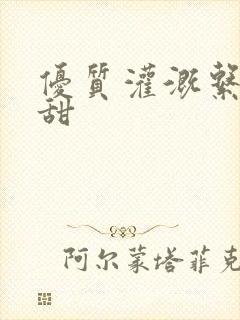 優質灌溉繫
甜
阿尔蒙塔菲克